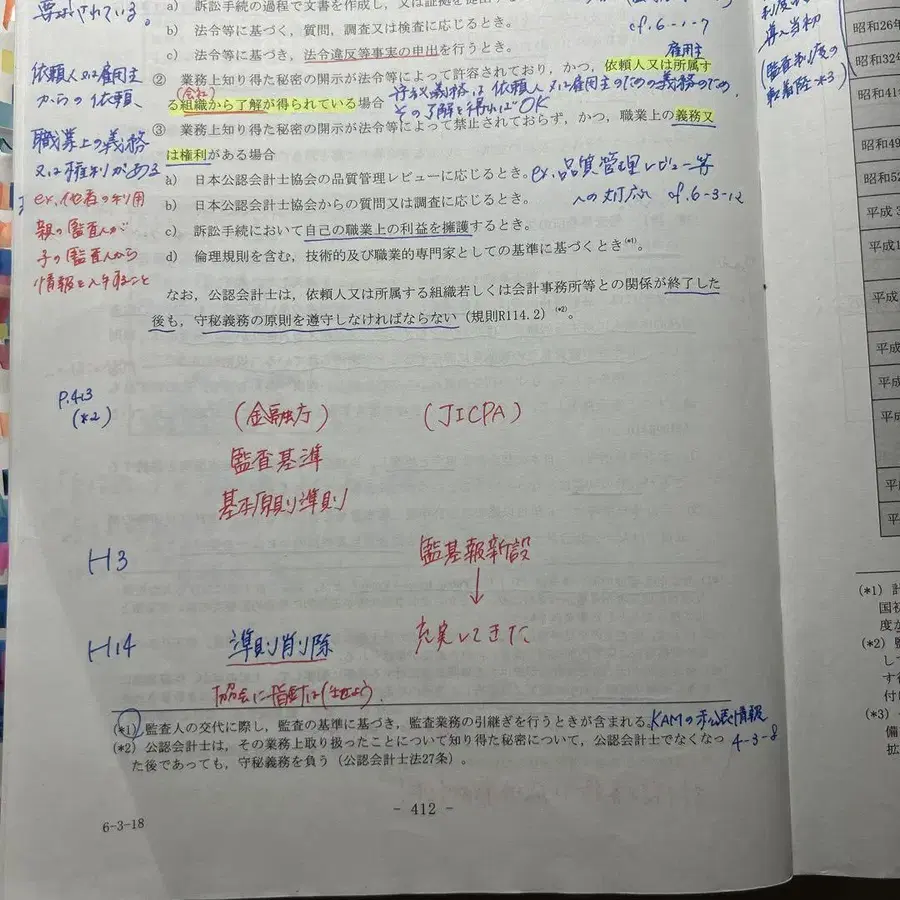 要求されている。
a) 訴訟手続の過程で文書を作成し，又は証拠を提出する
b) 法令等に基づく，質問，調査又は検査に応じるとき。
cf. 6-1-7
c) 法令等に基づき，法令違反等事実の申出を行うとき。
雇用主
② 業務上知り得た秘密の開示が法令等によって許容されており，かつ，依頼人又は所属す
(会社)
る組織から了解が得られている場合
守秘義務は依頼人又は雇用主のための義務のため，
その了解を得ればOK
依頼人又は雇用主
からの依頼
③ 業務上知り得た秘密の開示が法令等によって禁止されておらず，かつ，職業上の義務又
は権利がある場合
職業上の義務
又は権利がある
a) 日本公認会計士協会の品質管理レビューに応じるとき。
ex. 品質管理レビュー等
への対応 cf. 6-3-12
b) 日本公認会計士協会からの質問又は調査に応じるとき。
c) 訴訟手続において自己の職業上の利益を擁護するとき。
d) 倫理規則を含む，技術的及び職業的専門家としての基準に基づくとき(*1)。
ex. 他者の利用
親の監査人が
子の監査人から
情報を入手すること
なお，公認会計士は，依頼人又は所属する組織若しくは会計事務所等との関係が終了した
後も，守秘義務の原則を遵守しなければならない（規則R114.2）(*2)。
P.413
(*2)
(金融庁) (JICPA)
監査基準
基本原則準則
H3 監基報新設
↓
H14 準則削除 充実してきた
協会に指針は任せよう。
(*1) 監査人の交代に際し，監査の基準に基づき，監査業務の引継ぎを行うときが含まれる。
KAMの未公表情報
4-3-8
(*2) 公認会計士は，その業務上取り扱ったことについて知り得た秘密について，公認会計士でなくなっ
た後であっても，守秘義務を負う（公認会計士法27条）。
- 412 -
6-3-18
導入当初
(監査制度の
昭和26年
昭和32年
昭和41
昭和49
昭和52
平成3
平成1
平成
平成
平成
平成
平
平
(*1) 計
国初
度か
(*2) 監
して
す行
付
(*3)
備
拡